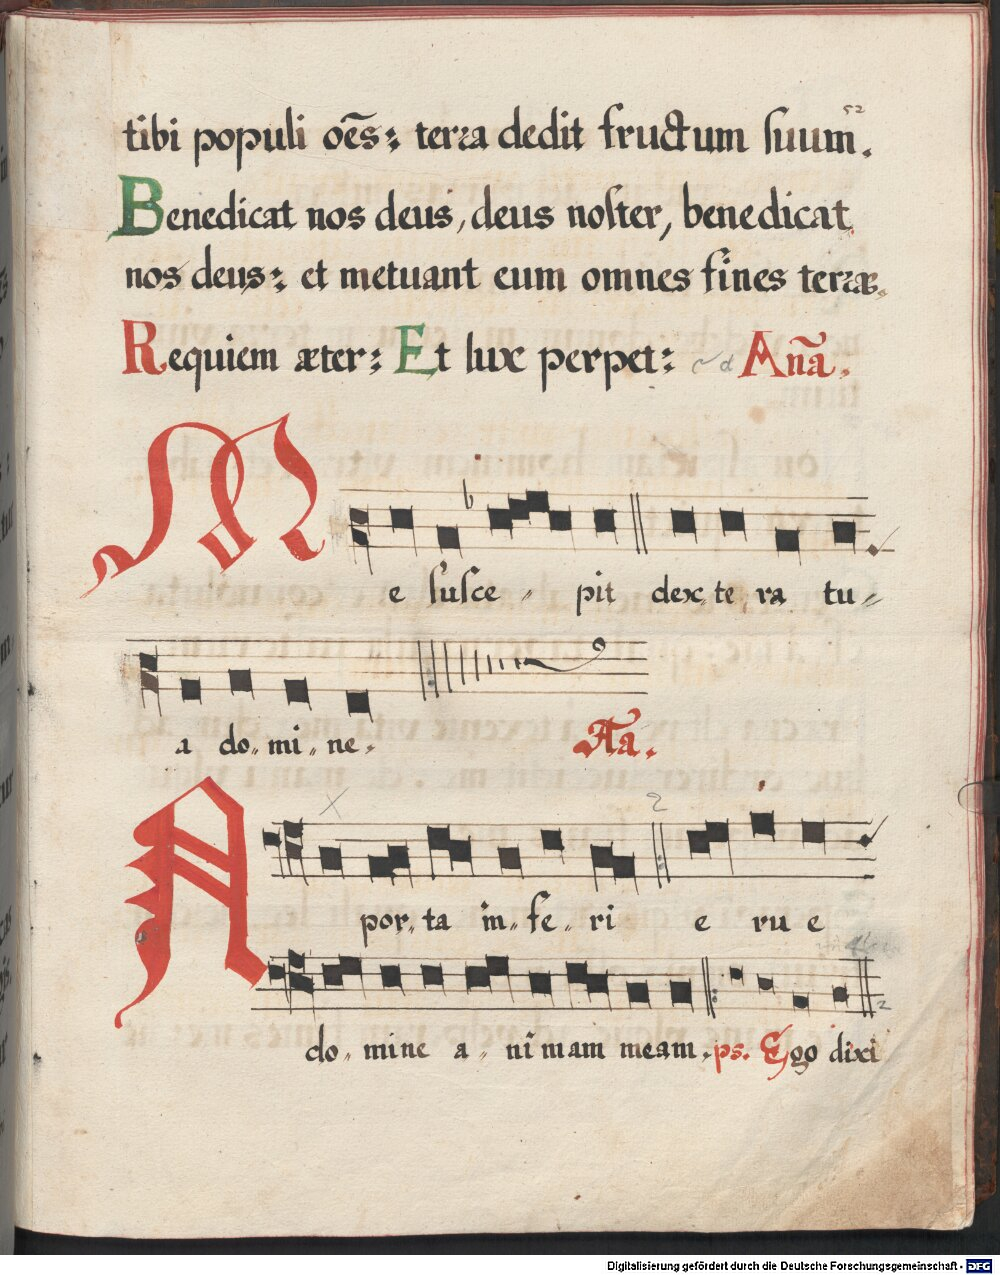 52
tibi populi oēs: terra dedit fructum suum.
Benedicat nos deus, deus noster, benedicat
nos deus: et metuant eum omnes fines terræ.
Requiem æter: Et lux perpet: Anã.
Me susce - pit dex, te, ra tu-
a do,, mi,, ne.
Ãa.
A por,, ta in,, fe,, ri e ru e
do,, mine a,, ni mam meam. ps. Ego dixi
Digitalisierung gefördert durch die Deutsche Forschungsgemeinschaft - DFG